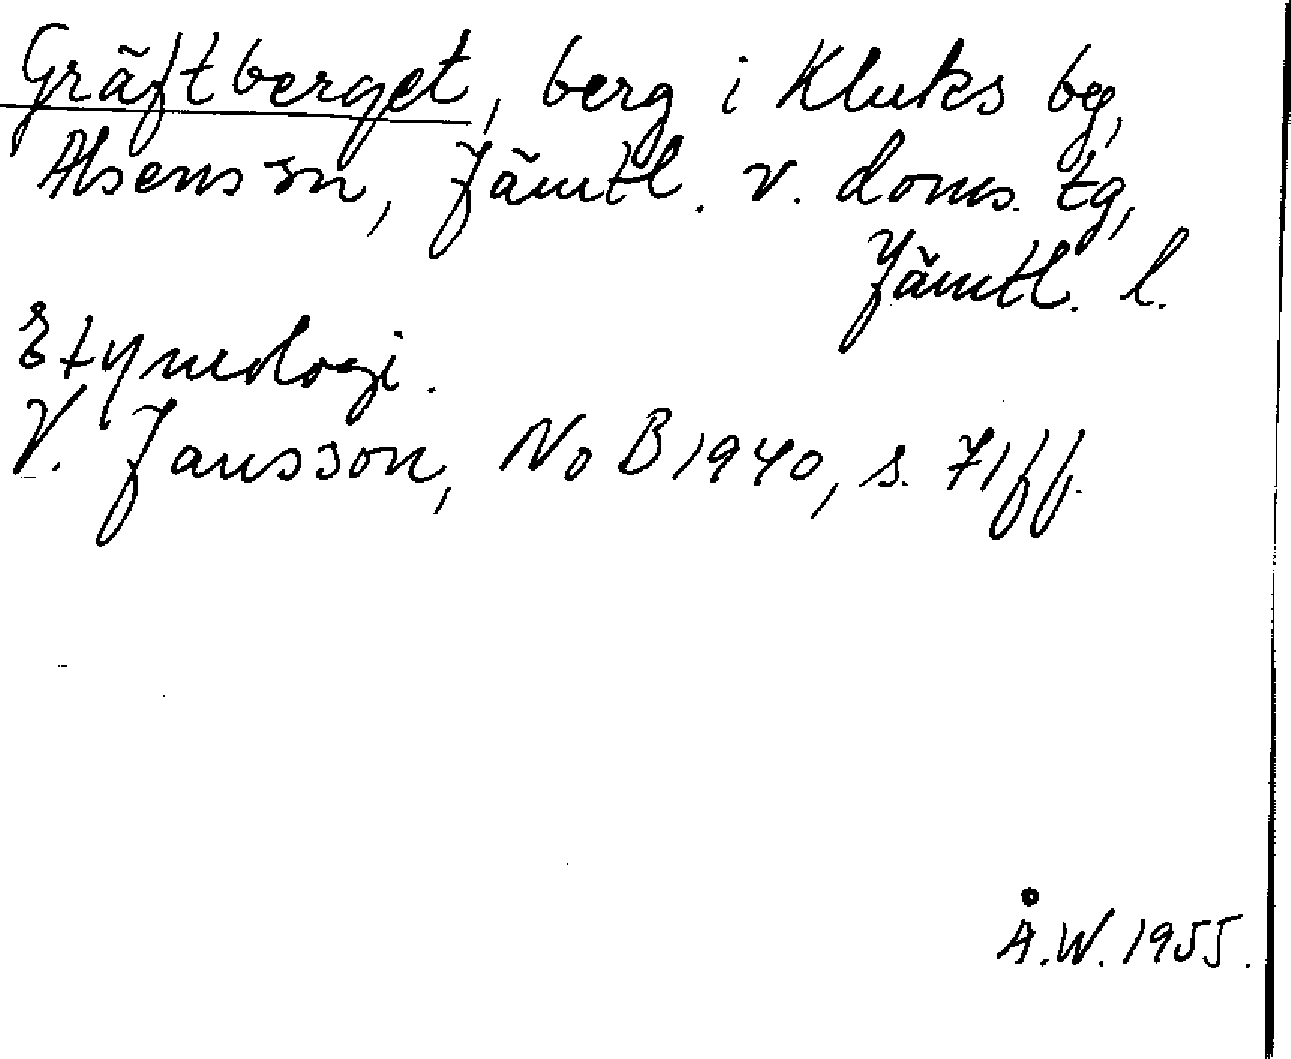 Gräftberget, berg i Kluks by,
Alsens sn, Jämtl. v. doms. tg,
Jämtl. l.
Etymologi.
V. Jansson, NoB 1940, s. 71ff.
Å.W. 1955.